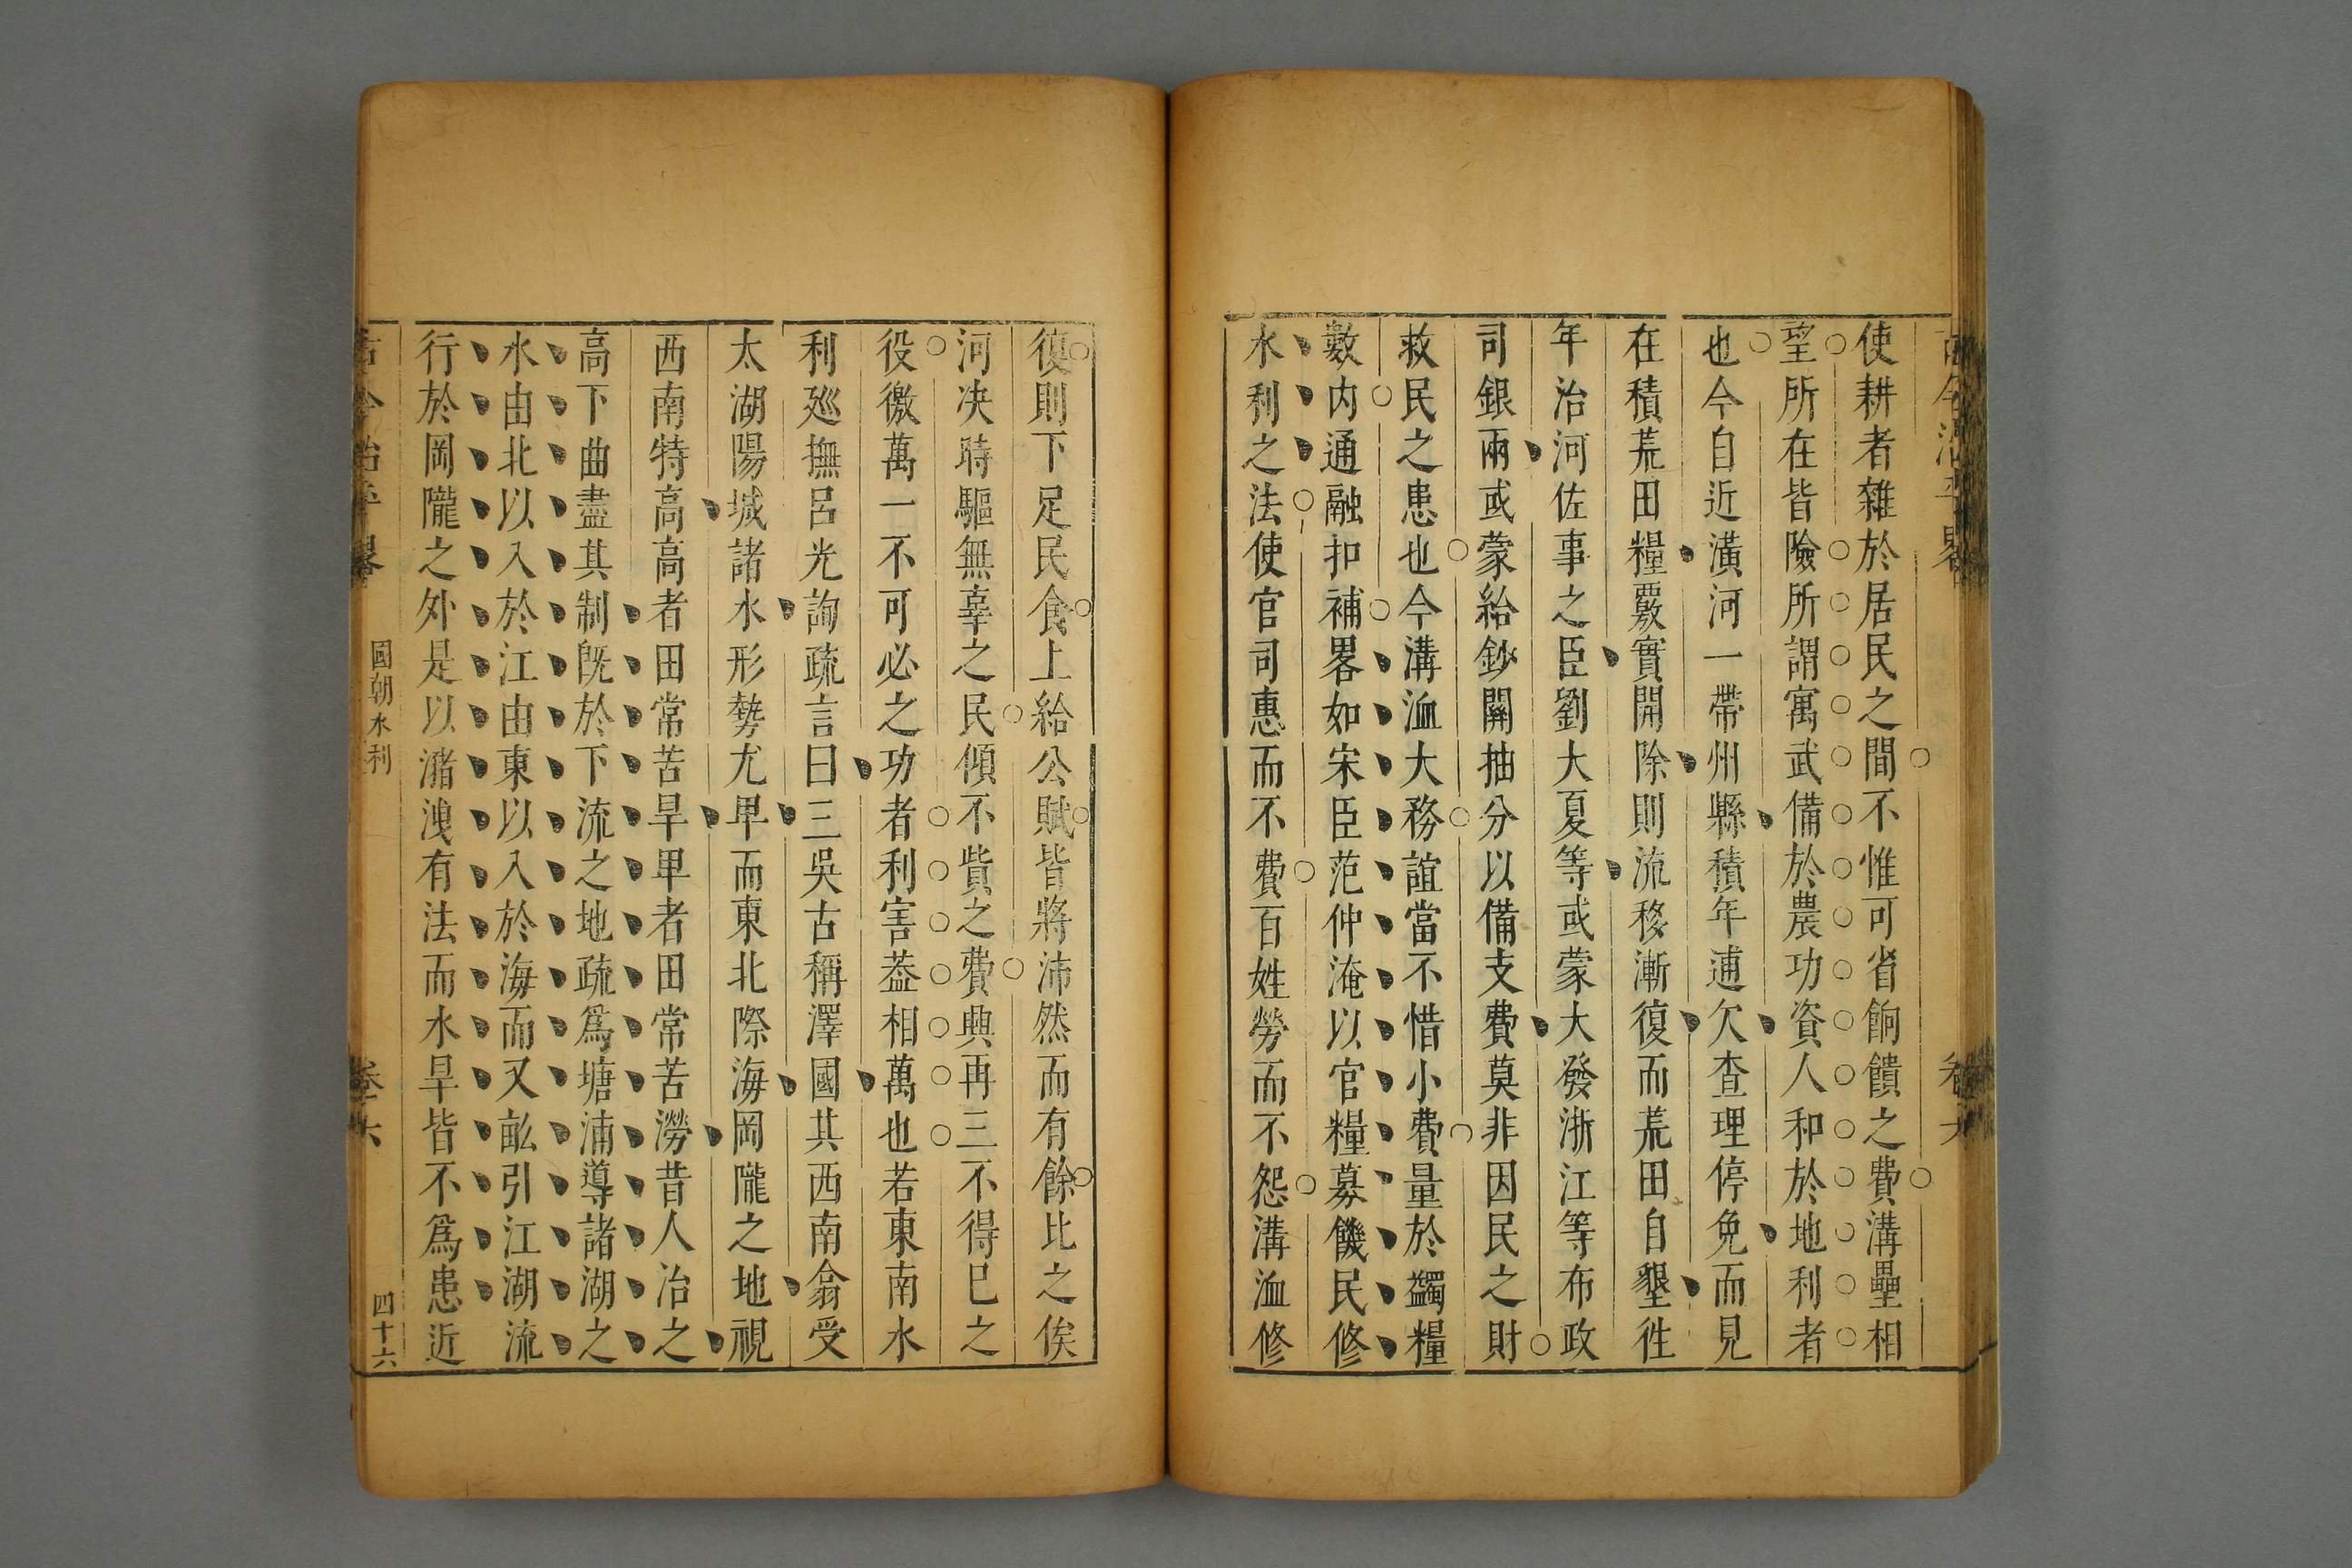 使耕者雜於居民之間不惟可省餉饋之費溝壘相
望所在皆險所謂寓武備於農功資人和於地利者
也今自近潢河一帶州縣積年逋欠查理停免而見
在積荒田糧覈實開除則流移漸復而荒田自墾徃
年治河佐事之臣劉大夏等或蒙大發浙江等布政
司銀兩或蒙給鈔關抽分以備支費莫非因民之財
救民之患也今溝洫大務誼當不惜小費量於蠲糧
數内通融扣補畧如宋臣范仲淹以官糧募饑民修
水利之法使官司惠而不費百姓勞而不怨溝洫修
復則下足民食上給公賦皆將沛然而有餘比之俟
河決時驅無辜之民傾不貲之費興再三不得已之
役徼萬一不可必之功者利害葢相萬也若東南水
利廵撫呂光詢疏言曰三吳古稱澤國其西南翕受
太湖陽城諸水形勢尤卑而東北際海岡隴之地視
西南特高高者田常苦旱卑者田常苦澇昔人治之
高下曲盡其制既於下流之地疏爲塘浦導諸湖之
水由北以入於江由東以入於海而又畝引江湖流
行於岡隴之外是以瀦洩有法而水旱皆不爲患近
古今治平畧
國朝水利
卷六
四十六